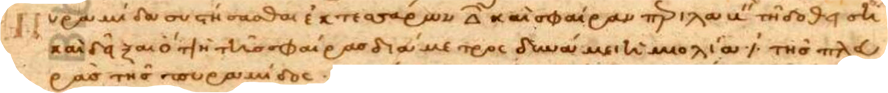 Πυραμίδα συστήσασθαι ἐκ τεσσάρων Δ̂ καὶ σφαίρᾳ περιλαβεῖν τῇ δοθείσῃ
καὶ δεῖξαι ὅτι ἡ τῆς σφαίρας διάμετρος δυνάμει ἡμιολία ἐστὶ τῆς πλευ
ρᾶς τῆς πυραμίδος.